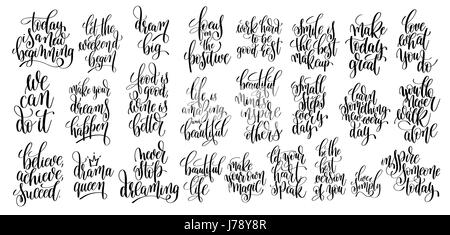 today
is a new
beginning
let the
weekend
begin
dream
big
focus
on the
positive
work hard
to be
good best
smile is
the best
makeup
make
today
great
love
what
you
do
we
can
do it
make your
dreams
happen
food is
good
wine is
better
life is
amazingly
beautiful
beautiful
minds
inspire
others
small
steps
every
day
learn
something
new every
day
you'll
never
walk
alone
believe
achieve
succeed
drama
queen
never
stop
dreaming
beautiful
life
make
your own
magic
let your
heart
speak
be the
best
version
of you
live
simply
inspire
someone
today
alamy stock photo
Image ID: J78Y8R
www.alamy.com